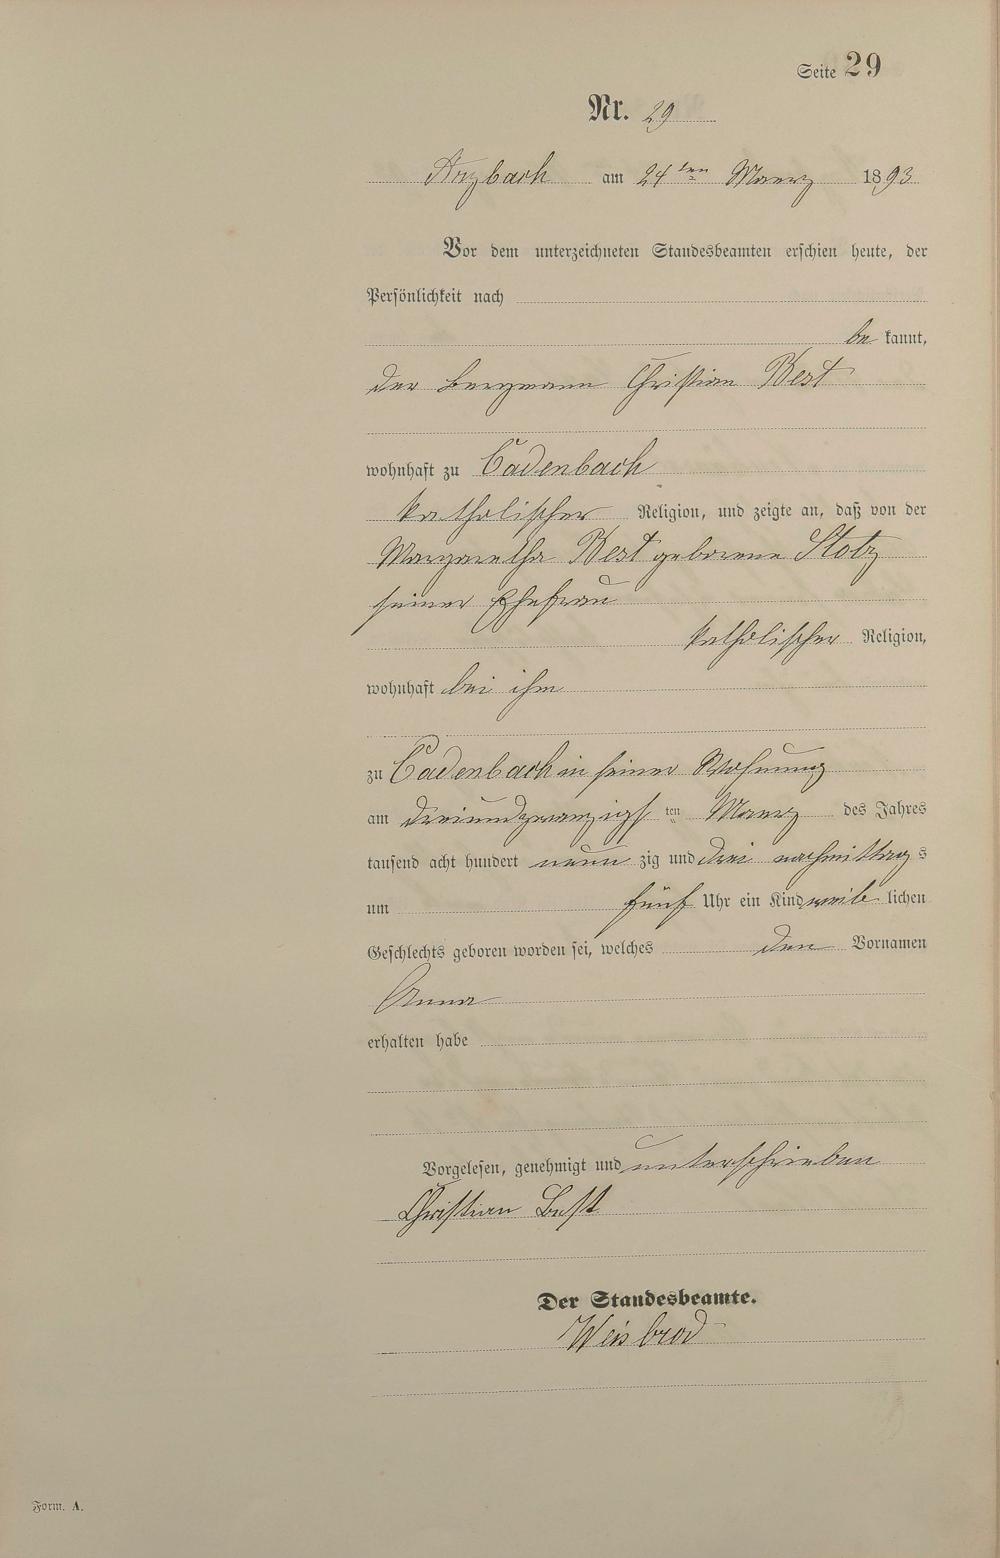 Seite 29
Nr. 29
Arzbach am 24 ten Maerz 1893
Vor dem unterzeichneten Standesbeamten erschien heute, der
Persönlichkeit nach
be kannt,
der Bergmann Christian Best
wohnhaft zu Cadenbach
katholischer Religion, und zeigte an, daß von der
Margaretha Best geborene Stotz
seiner Ehefrau
katholischer Religion,
wohnhaft bei ihm
zu Cadenbach in seiner Wohnung
am dreiundzwanzigs ten Maerz des Jahres
tausend acht hundert neun zig und drei nachmittags
um fünf Uhr ein Kind weib lichen
Geschlechts geboren worden sei, welches den Vornamen
Anna
erhalten habe
Vorgelesen, genehmigt und unterschrieben
Christian Best
Der Standesbeamte.
Weisbrod
Form. A.